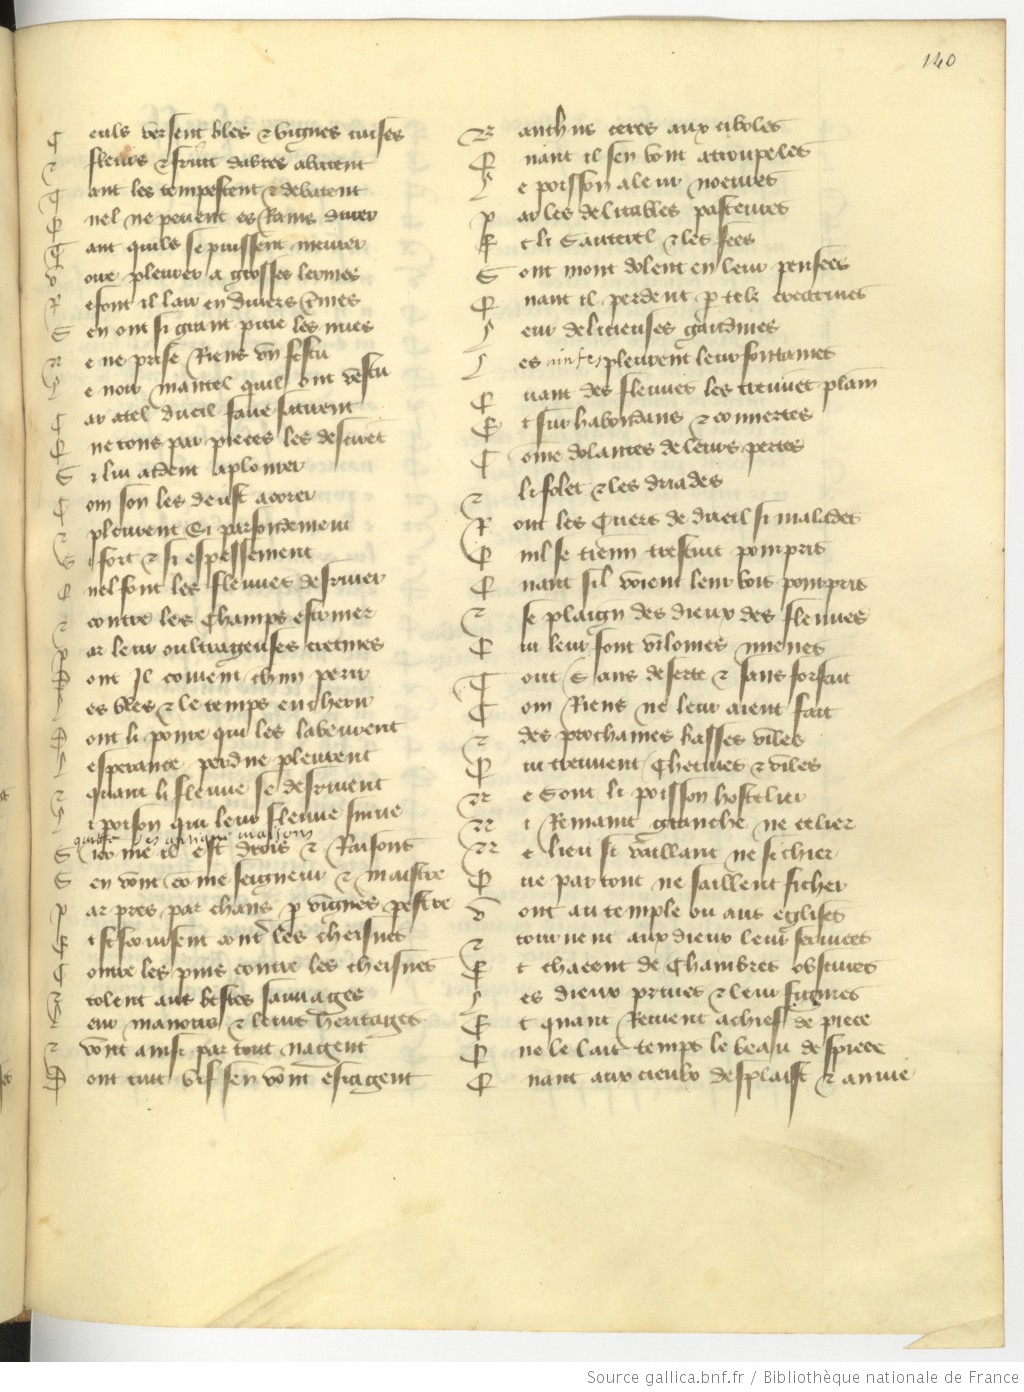 140
C euls versent bles & vignes cuises
& fleurs & fruit dautres abatent
T ant les tempestent & debatent
Q uel ne pevent es Rams durer
T ant quils se puissent meurer
v oire pleurer a grosses lermes
R efont il lair en divers
S en ont si grant pitie les nues
& e ne prise Riens un festu
L e noir mantel quil ont vestu
C ar atel dueil faire saturent
Q ue tous par pieces les
S i lui aident aplourer
C om son les deust acorer
& pleurent Si parfondement
S i fort & si espessement
Q uel font les fleuves desriver
& contre les Champs estriver
P ar leur oultrageuses cretines
D ont Il covient perir
L es bles & le temps encherir
D ont li povre qui les labeurent
L esperance perdue pleurent
& quant li fleuve se desrivent
L i poisson qui leur fleuve sivue
S icomme il est drois & Raisons
quant es maisons
S en vont come seigneur & maistre
P ar pres par chans p vignes pestre
E t contre les chesnes
C ontre les pins contre les chesnes
& tolent aus bestes sauvages
L eur manoirs & leurs heritages
& vont ainsi par tout nagent
D ont tuit vif sen vont esragent
B acchus ceres aux ciboles
Q uant il sen vont atroupeles
L e poisson a leur noeures
P ar les delitables pastures
E t li Sauterel & les fees
S ont mont dolent en leur pensees
Q uant il perdent p telz cretines
L eur delicieuses gaudines
L es pleurent leur fontaines
Q uant des fleuves les treuvet plain
E t sur habondans & couvertes
C ome dolantes de leurs pertes
& li folet & les driades
R ont les Cuers de dueil si malades
Q uil se tienn trestuit pour pris
Q uant sil voient leur bois pourpris
& se plaign des dieux des fleuves
Q ui leur font vilonies nueves
T out Sans deserte & sans forfait
C om Riens ne leur aient fait
& des prochaines basses viles
Q ui treuvent Chetives & viles
& e Sont li poisson hostelier
N i Remaint granche ne celier
N e lieu si vaillant ne si chier
Q ue par tout ne saillent ficher
V ont au temple ou aus eglises
& tournent aux dieux leur servises
E t chacent de Chambres obscures
L es dieux prives & leur figures
E t quant Revient achief de piece
Q ue le lait temps le beau despiece
Q uant aux cieulx desplaist & anuie